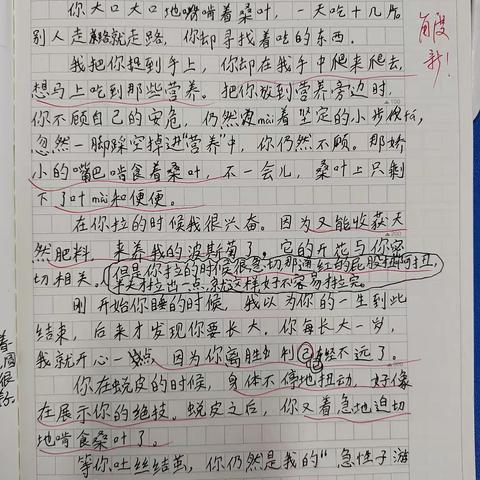 你大口大口地啃着桑叶，一天吃十几片
别人走路就走路，你却寻找着吃的东西。
我把你捉到手上，你却在我手中爬来爬去，
想马上吃到那些营养。把你放到营养旁边时，
你不顾自己的安危，仍然mài着坚定的小步伐，
忽然一脚踩空掉进"营养"中，你仍然不顾。那娇
小的嘴巴啃食着桑叶，不一会儿，桑叶上只剩
下了叶mài和便便。
在你拉的时候我很兴奋。因为又能收获天
然肥料，来养我的波斯菊了。它的开花与你密
切相关。但是你拉的时候很急切那通红的屁股扭阿扭，
半天拉出一点，就这样好不容易拉完。
刚开始你睡的时候，我以为你的一生到此
结束，后来才发现你要长大，你每长大一岁，
我就开心一点，因为你离胜利已经不远了。
你在蜕皮的时候，身体不停地扭动，好像
在展示你的绝技。蜕皮之后，你又着急地迫切
地啃食桑叶了。
等你吐丝结茧，你仍然是我的"急性子
角度
新！
着
圆
很